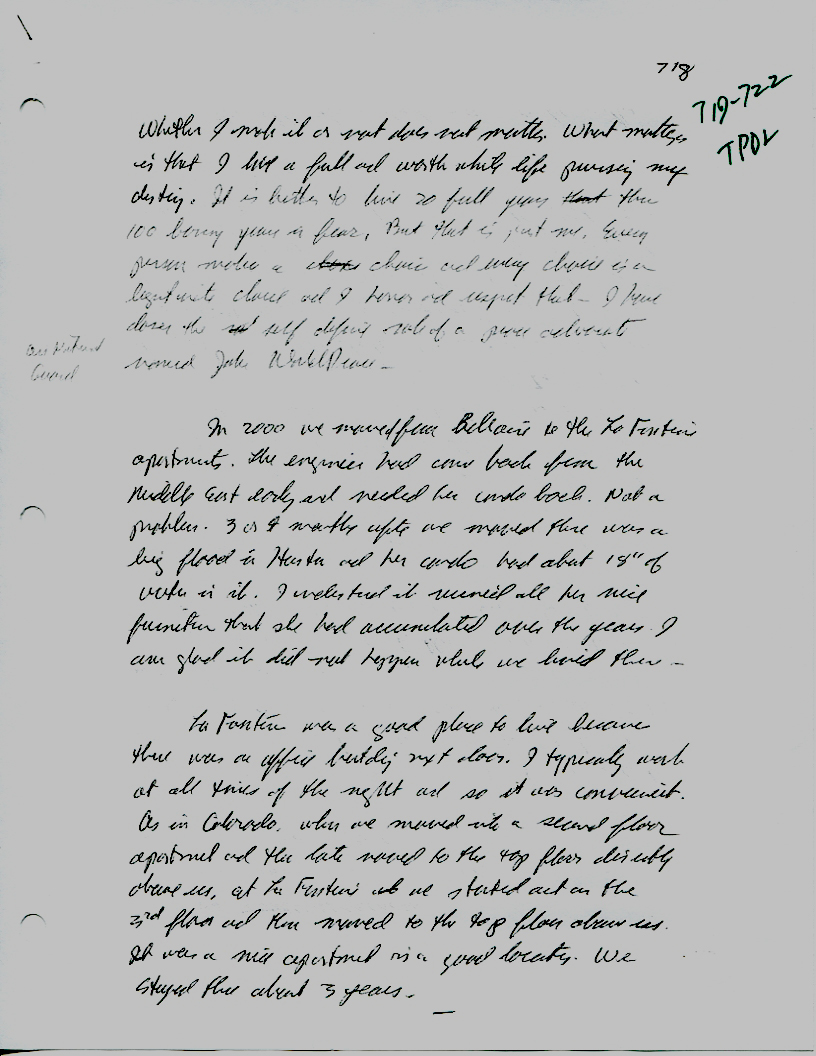 718
719-722
TPDL
Whether I make it or not does not matter. What matters
is that I live a full and worth while life pursuing my
destiny. It is better to live 20 full years that than
100 boring years in fear. But that is just me. Every
person makes a choice and every choice is a
legitimate choice and I honor and respect that - I have
chosen the self defined role of a peace advocate
named John WorldPeace -
Guard
In 2000 we moved from Bellaire to the La Fontaine
apartments. The engineer had come back from the
Middle East early and needed her condo back. Not a
problem. 3 or 4 months after we moved there was a
big flood in Houston and her condo had about 18" of
water in it. I understand it ruined all her nice
furniture that she had accumulated over the years. I
am glad it did not happen while we lived there -
La Fontaine was a good place to live because
there was an office building next door. I typically work
at all times of the night and so it was convenient.
As in Colorado, when we moved into a second floor
apartment and then later moved to the top floor directly
above us, at La Fontaine we started out on the
3rd floor and then moved to the top floor above us.
It was a nice apartment in a good location. We
stayed there about 3 years.